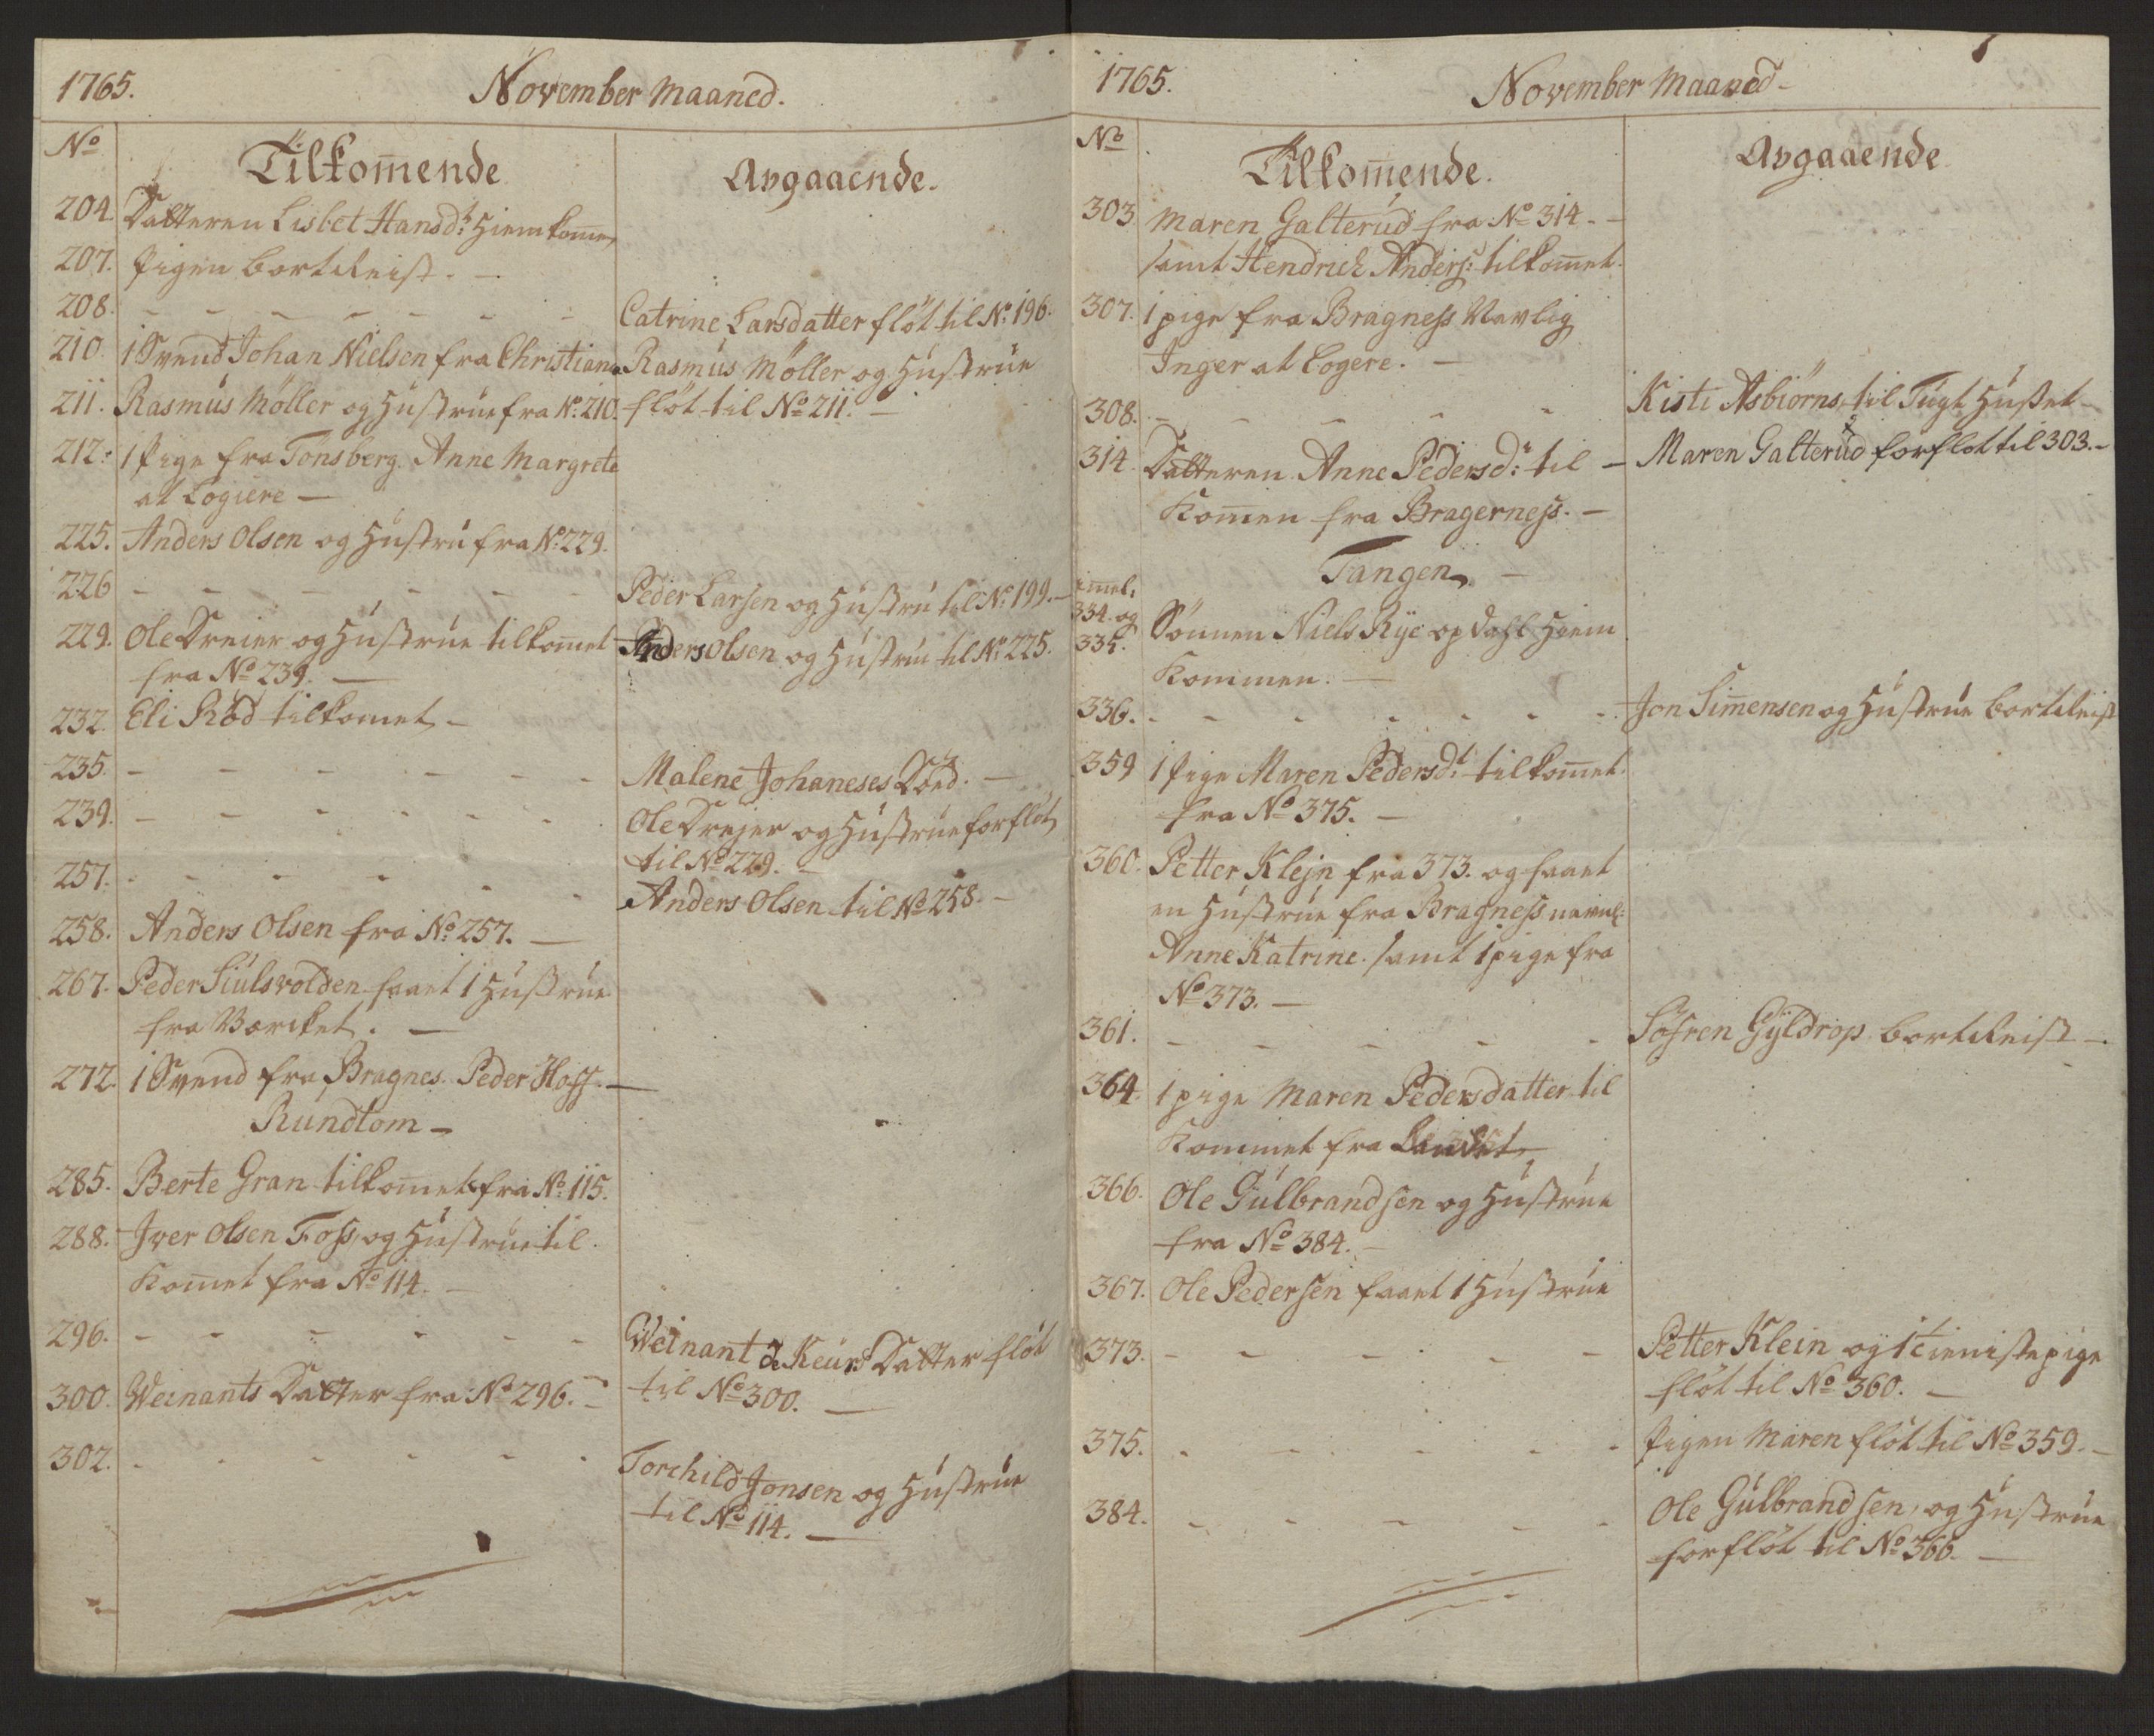 1765.
November Maaned.
No
Tilkom̄ende
Avgaaende.
204. Datteren Lisbet Hansd: Hiemkom̄en
207. Pigen bortreist. -
208. - - - - - - -
Catrine Larsdatter flöt til No. 196.
210. 1 Svend Johan Nielsen fra Christiana
Rasmus Möller og Hustrue
211. Rasmus Möller og Hustrue fra No. 210.
flöt til No 211. -
212: 1 Pige fra Tönsberg. Anne Margrete
at Logiere -
225. Anders Olsen og Hustru fra No. 229.
226 - - - - - -
Peder Larsen og Hustru til No. 199. -
229. Ole Dreier og Hustrue tilkom̄et
fra No 239. -
Anders Olsen og Hustrue til No. 225.
232. Eli Röd tilkomet -
235. - - - - - -
Malene Johaneses Död. -
239. - - - - - -
Ole Drejer og Hustrue forflöt
til No 229. -
257. - - - - - -
Anders Olsen til No 258. -
258. Anders Olsen fra No 257. -
267. Peder Siulsvolden faaet 1 Hustrue
fra Værcket. -
272. 1 Svend fra Bragnes. Peder Hoff. -
Rundtom -
285. Berte Gran tilkom̄et fra No. 115.
288. Iver Olsen Foss og Hustrue til
Kom̄et fra No 114. -
296. - - - - - -
Weinant de Keürs Datter flöt
til No 300. -
300. Weinants Datter fra No 296. -
302. - - - - - -
Torchild Jonsen og Hustrue
til No 114. -
1765.
November Maaned -
No
Tilkom̄ende.
Avgaaende
303. Maren Galterud fra No 314. -
samt Hendrich Anders: tilkom̄et.
307. 1 pige fra Bragness Navlig
Inger at Logere. -
308. - - - -
Kisti Asbiörns. til Tugt Huset -
314. Datteren Anne Pedersd: til -
Kom̄en fra Bragerness. -
Maren Galterud forflöt til 303. -
Tangen. -
im̄el:
334. og
335.
Sönnen Niels Rye opdahl Hiem
Kommen. -
336. - - - - - - -
Jon Sim̄ensen og Hustrue bortreist
359 1 Pige Maren Pedersd: tilkom̄et.
fra No 375. -
360. Petter Klejn fra 373. og faaet
en Hustrue fra Bragness navnl:
Anne Katrine. samt 1 pige fra
No 373. -
361. - - - - -
Söfren Gyldrop bortreist -
364. 1 pige Maren Pedersdatter til
Kommet fra Landet
366. Ole Gulbrandsen og Hustrue
fra No 384. -
367. Ole Pedersen faaet 1 Hustrue
373. - - - - - -
Petter Klein og 1 tieniste pige
flöt til No 360. -
375. - - - - -
Pigen Maren flöt til No 359. -
384. - - - - -
Ole Gulbrandsen, og Hustrue
forflöt til No 366. -